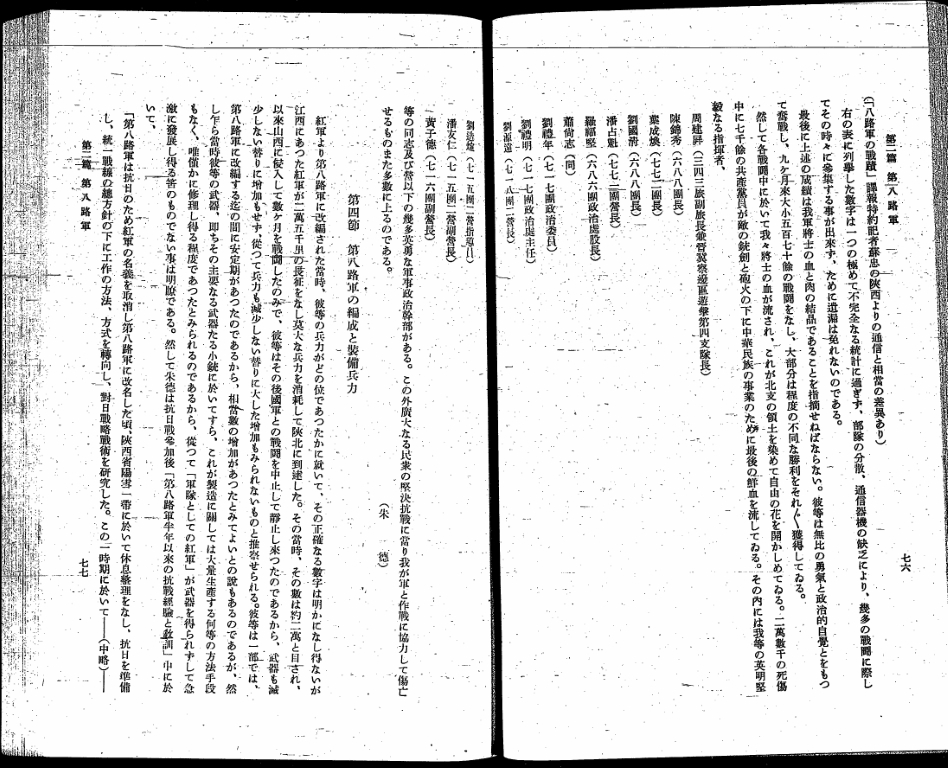 第二篇　第八路軍
七六
(「八路軍の戰蹟」譯報特約記者蘇忠の陝西よりの通信と相當の差異あり)
右の表に列擧した數字は一つの極めて不完全なる統計に過ぎず、部隊の分散、通信器機の缺乏により、幾多の戰鬪に際し
てその時々に蒐集する事が出來ず、ために遺漏は免れないのである。
最後に上述の成績は我軍將士の血と肉の結晶であることを指摘せねばならない。彼等は無比の勇氣と政治的自覺とをもつ
て奮戰し、九ヶ月來大小五百七十餘の戰鬪をなし、大部分は程度の不同な勝利をそれ〲獲得してゐる。
然して各戰鬪中に於いて我々將士の血が流され、これが北支の領土を染めて自由の花を開かしめてゐる。二萬數千の死傷
中に七千餘の共產黨員が敵の銃劍と砲火の下に中華民族の事業のために最後の鮮血を流してゐる。その內には我等の英明堅
毅なる指揮者、
周建屛(三四三旅副旅長兼晉冀察邊區遊擊第四支隊長)
陳錦秀(六八八團長)
葉成煥(七七二團長)
劉國淸(六八八團長)
潘占魁(七七二團營長)
羅福堅(六八六團政治處設長)
蕭尙志(同)
劉禮年(七一七團政治委員)
劉禮明(七一七團政治處主任)
劉源遠(七一八團二營長)
劉造煌(七一五團二營指導員)
潘友仁(七一五團二營副營長)
黃子德(七一六團副營長)
等の同志及び營以下の幾多英勇な軍事政治幹部がある。この外廣大なる民衆の堅決抗戰に當り我が軍と作戰に協力して傷亡
せるものまた多數に上るのである。
(朱　德)
第四節　第八路軍の編成と裝備兵力
紅軍より第八路軍に改編された當時、彼等の兵力がどの位であつたかに就いて、その正確なる數字は明かになし得ないが
江西にあつた紅軍が二萬五千里の長征をなし莫大な兵力を消耗して陝北に到達した。その當時、その數は約二萬と目され、
以來山西に侵入して數ヶ月を戰鬪したのみで、彼等はその後國軍との戰鬪を中止して靜止し來つたのであるから、武器も減
少しない替りに增加もせず、從つて兵力も減少しない替りに大した增加もみられないものと推察せられる。彼等は一部では、
第八路軍に改編する迄の間に安定期があつたのであるから、相當數の增加があつたとみてよいとの說もあるのであるが、然
し乍ら當時彼等の武器、即ちその主要なる武器たる小銃に於いてすら、これが製造に關しては大量生產する何等の方法手段
もなく、唯僅かに修理し得る程度であつたとみられるのであるから、從つて「軍隊としての紅軍」が武器を得られずして急
激に發展し得る筈のものでない事は明瞭である。然して朱德は抗日戰參加後「第八路軍半年以來の抗戰經驗と敎訓」中に於
いて、
「第八路軍は抗日のため紅軍の名義を取消し第八路軍に改名した頃、陝西省陽雪一帶に於いて休息整理をなし、抗日を準備
し、統一戰線の總方針の下に工作の方法、方式を轉向し、對日戰略戰術を硏究した。この一時期に於いて――(中略)――
第二篇　第八路軍
七七